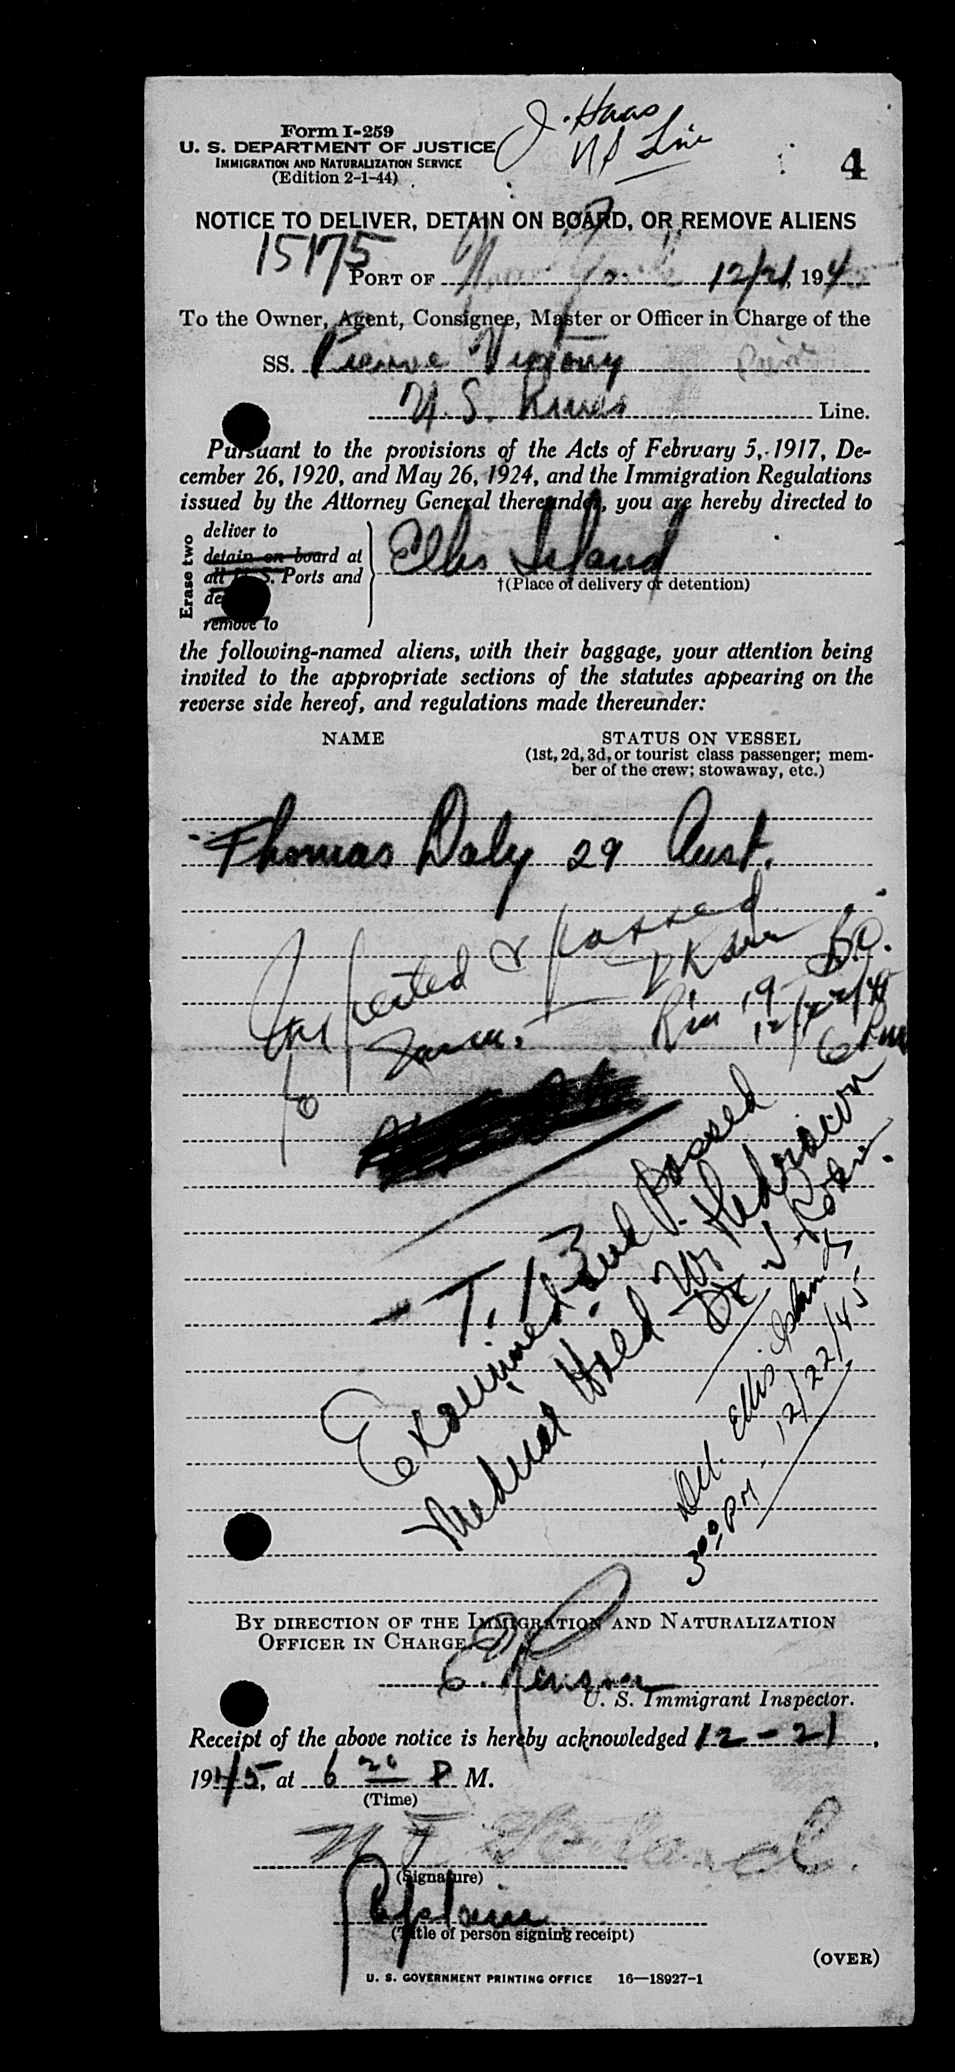 J. Haas
US Line
Form I-259
U. S. DEPARTMENT OF JUSTICE
IMMIGRATION AND NATURALIZATION SERVICE
(Edition 2-1-44)
4
NOTICE TO DELIVER, DETAIN ON BOARD, OR REMOVE ALIENS
15175
PORT OF New York 12/21, 194
To the Owner, Agent, Consignee, Master or Officer in Charge of the
SS. Pierre Victory
U. S. Lines Line.
Pursuant to the provisions of the Acts of February 5, 1917, De-
cember 26, 1920, and May 26, 1924, and the Immigration Regulations
issued by the Attorney General thereunder, you are hereby directed to
Erase two
deliver to
detain on board at
all U. S. Ports and
de
remove to
Ellis Island
†(Place of delivery or detention)
the following-named aliens, with their baggage, your attention being
invited to the appropriate sections of the statutes appearing on the
reverse side hereof, and regulations made thereunder:
NAME STATUS ON VESSEL
(1st, 2d, 3d, or tourist class passenger; mem-
ber of the crew; stowaway, etc.)
Thomas Daly 29 Aust.
Inspected & passed
12/22/45
6 Pm
Examined and passed
Medical Hold Withdrawn
Del. Ellis Island
3 00 PM 12/22/45
BY DIRECTION OF THE IMMIGRATION AND NATURALIZATION
OFFICER IN CHARGE
E.
U. S. Immigrant Inspector.
Receipt of the above notice is hereby acknowledged 12-21,
1945, at 6 20 P M.
(Time)
(Signature)
Captain
(Title of person signing receipt)
(OVER)
U. S. GOVERNMENT PRINTING OFFICE 16—18927-1